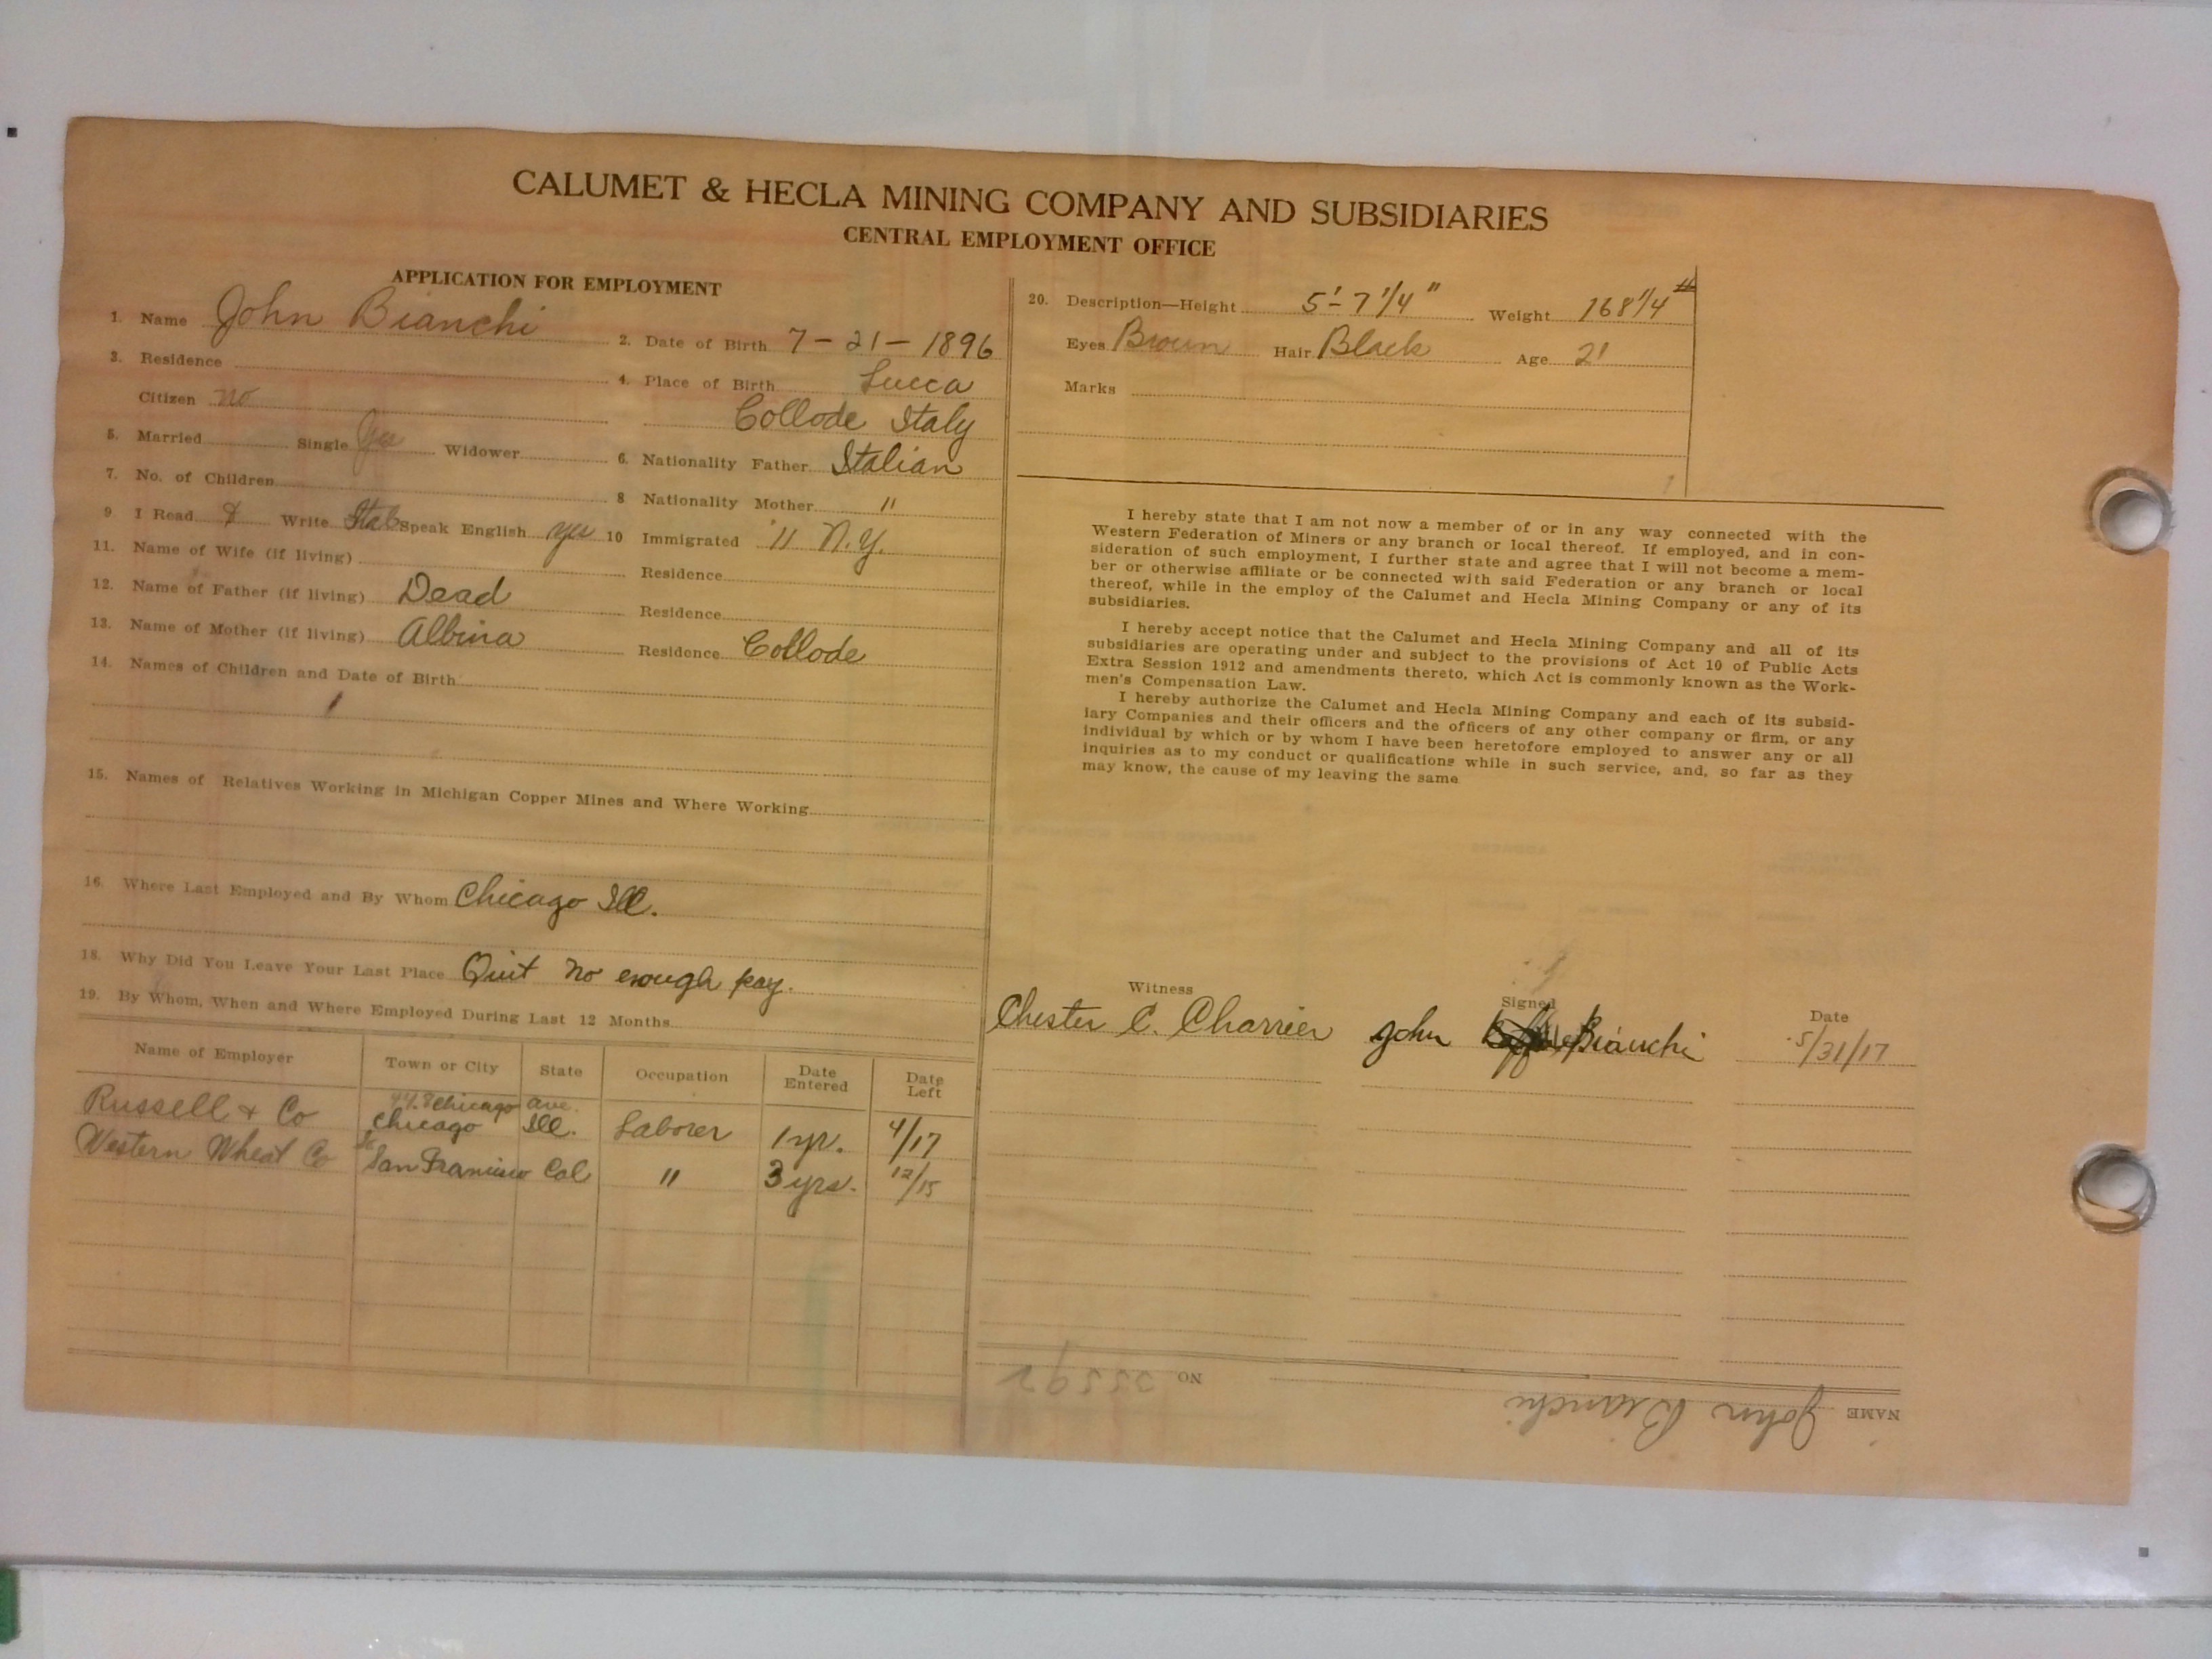 CALUMET & HECLA MINING COMPANY AND SUBSIDIARIES
CENTRAL EMPLOYMENT OFFICE
APPLICATION FOR EMPLOYMENT
1. Name John Bianchi
2. Date of Birth 7-21-1896
3. Residence
4. Place of Birth Lucca
Citizen no
Collode Italy
5. Married Single Yes Widower
6. Nationality Father Italian
7. No. of Children
8 Nationality Mother "
9 I Read & Write Ital Speak English yes
10 Immigrated '11 N.Y.
11. Name of Wife (if living)
Residence
12. Name of Father (if living) Dead
Residence
13. Name of Mother (if living) Albina
Residence Collode
14. Names of Children and Date of Birth
15. Names of Relatives Working in Michigan Copper Mines and Where Working
16. Where Last Employed and By Whom Chicago Ill.
18. Why Did You Leave Your Last Place Quit no enough pay.
19. By Whom, When and Where Employed During Last 12 Months
Name of Employer Town or City State Occupation Date Entered Date Left
Chicago ave.
Russell & Co Chicago Ill. Laborer 1 yr. 4/17
Western Wheat Co San Francisco Cal " 3 yrs. 12/15
20. Description—Height 5'-7 1/4" Weight 168 1/4 #
Eyes Brown Hair Black Age 21
Marks
I hereby state that I am not now a member of or in any way connected with the
Western Federation of Miners or any branch or local thereof. If employed, and in con-
sideration of such employment, I further state and agree that I will not become a mem-
ber or otherwise affiliate or be connected with said Federation or any branch or local
thereof, while in the employ of the Calumet and Hecla Mining Company or any of its
subsidiaries.
I hereby accept notice that the Calumet and Hecla Mining Company and all of its
subsidiaries are operating under and subject to the provisions of Act 10 of Public Acts
Extra Session 1912 and amendments thereto, which Act is commonly known as the Work-
men's Compensation Law.
I hereby authorize the Calumet and Hecla Mining Company and each of its subsid-
iary Companies and their officers and the officers of any other company or firm, or any
individual by which or by whom I have been heretofore employed to answer any or all
inquiries as to my conduct or qualifications while in such service, and, so far as they
may know, the cause of my leaving the same
Witness Signed Date
Chester C. Charrier John Bianchi 5/31/17
NAME John Bianchi
NO 25592